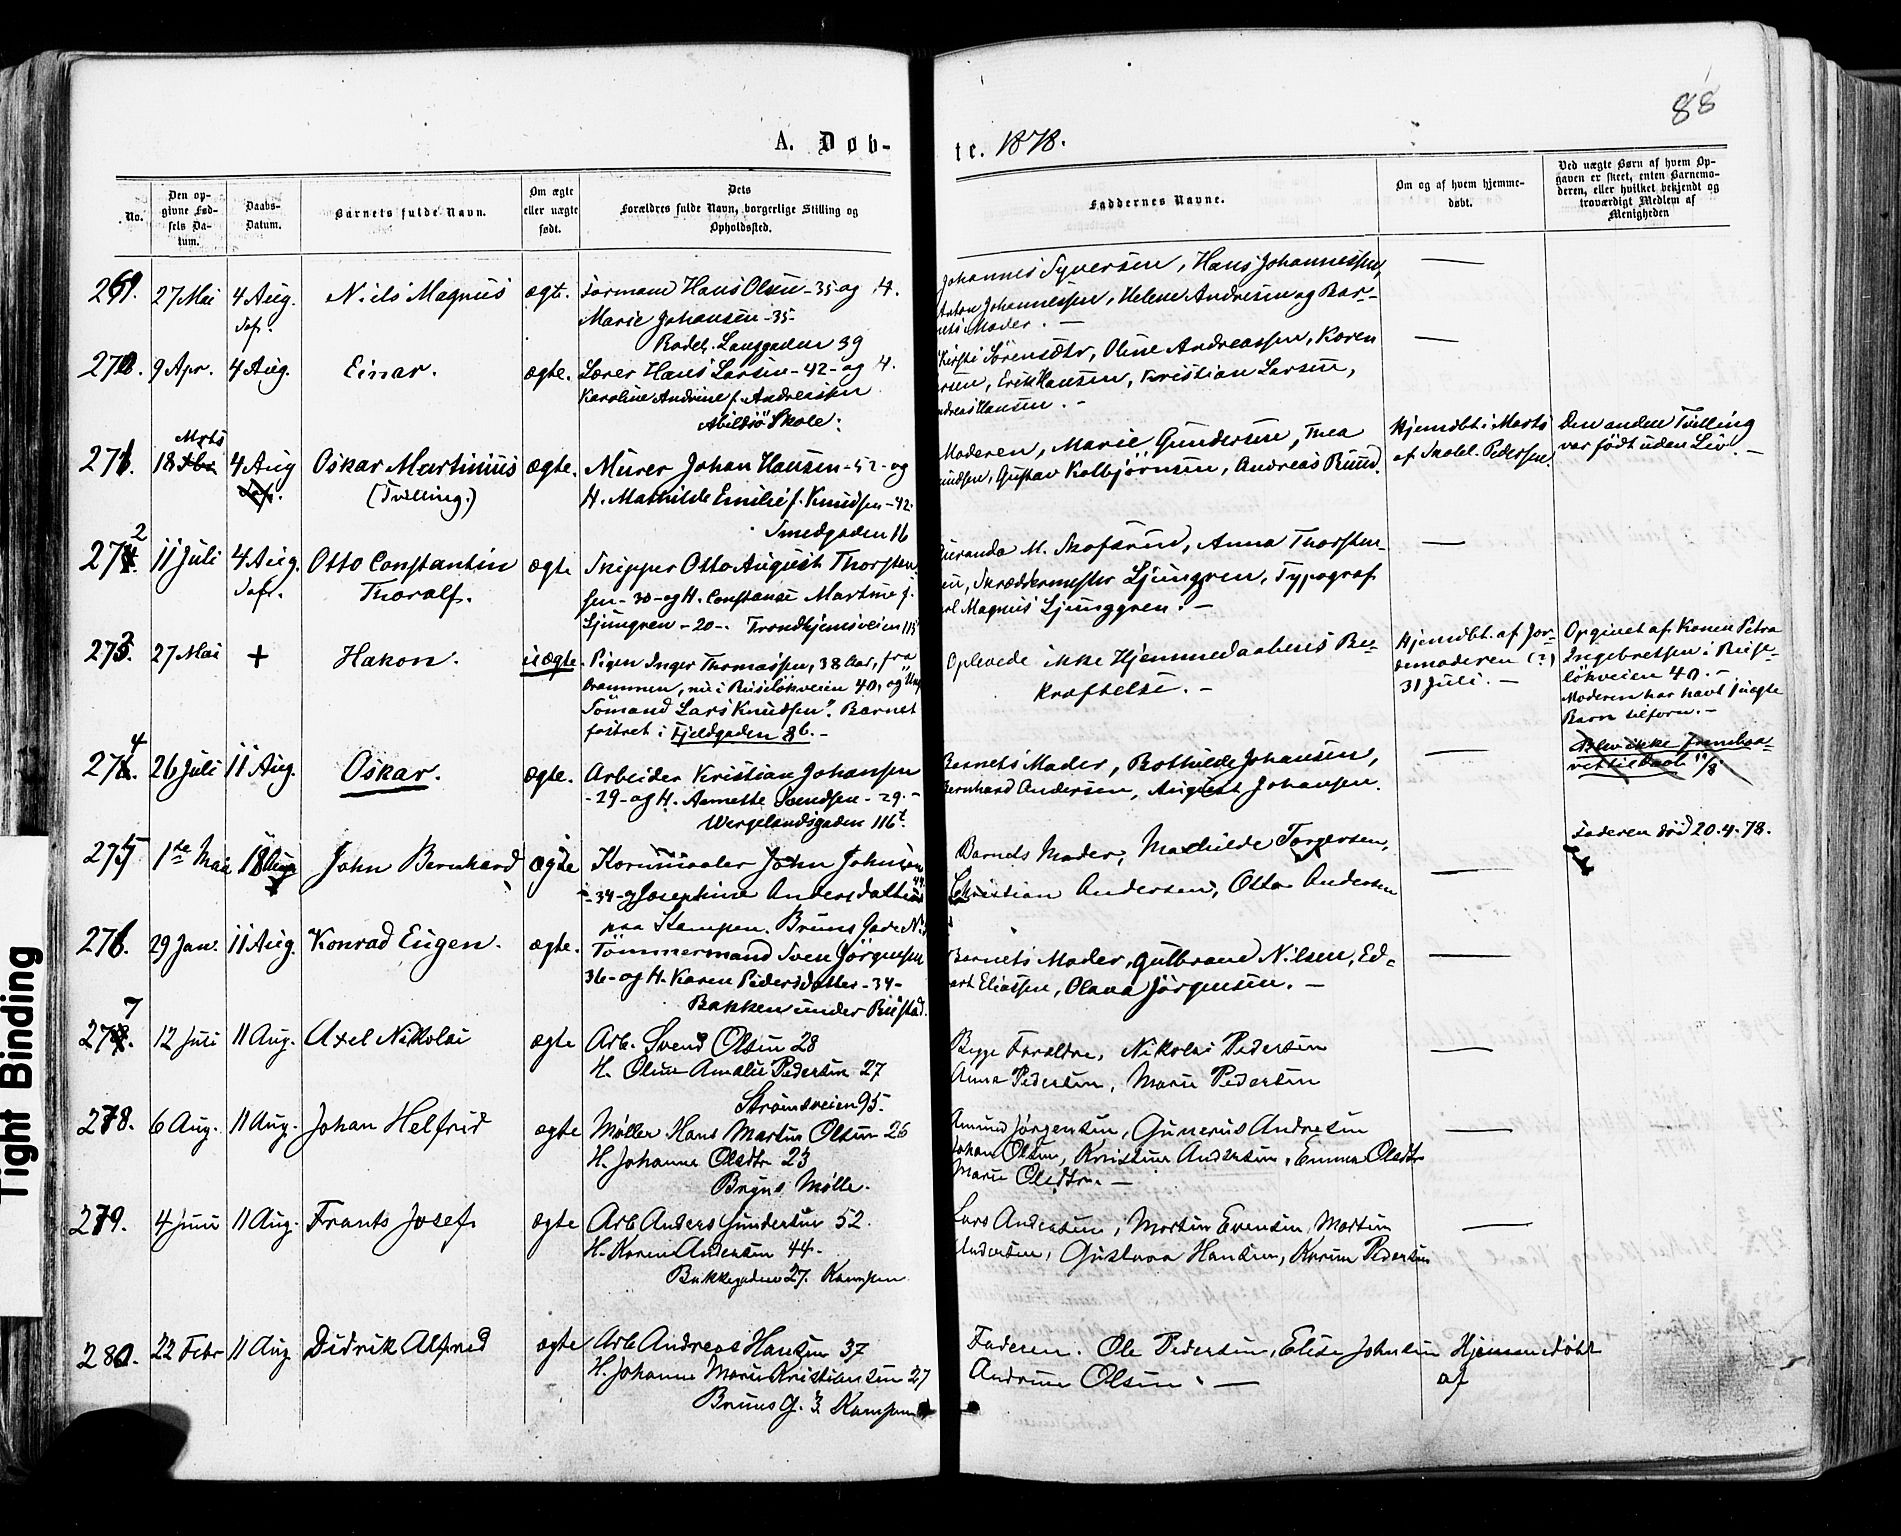 88
A. Døb-
te. 1878.
No.
Den op-
givne Fød-
sels Da-
tum.
Daabs-
Datum.
Barnets fulde Navn.
Om ægte
eller uægte
født.
Dets
Forældres fulde Navn, borgerlige Stilling og
Opholdssted.
Faddernes Navne.
Om og af hvem hjemme-
døbt.
Ved uægte Børn af hvem Op-
gaven er skeet, enten Barnemo-
deren, eller hvilket bekjendt og
troværdigt Medlem af
Menigheden
269. 27 Mai 4 Aug. Niels Magnus ægte. Formand Hans Olsen - 35 - og H.
Marie Johansen - 35 -
Langgaden 39
Johannes Syversen, Hans Johannessen,
Anton Johannessen, Helene Andresen og Bar-
nets Moder. -
270. 9 Apr. 4 Aug. Einar. ægte. Lærer Hans Larsen - 42 - og H.
Karoline Andrine f. Andreassen
Abildsö Skole.
Sörensdtr, Oline Andreassen, Karen
Erik Hansen, Kristian Larsen,
Hansen. -
271. 18 Mrts 4 Aug Oskar Martinius ægte. Murer Johan Hansen - 52 - og
(Tvilling.)
H. Mathilde Emilie f. Knudsen - 42.
Smedgaden 16
Moderen, Marie Gundersen, Thea
Gustav Kolbjörnsen, Andreas Rund.
Hjemdbt i Marts
af Pedersen.
Den anden Tvilling
var født uden Liv. -
272. 11 Juli 4 Aug. Otto Constantin ægte Skipper Otto August Thorsten-
Thoralf.
sen - 30 - og H. Constanse Martine f.
Ljungren - 20 -. Trondhjemsveien 115
M. Anna Thorsten-
sen, Skræddermester Ljungren, Typograf
Magnus Ljunggren. -
273. 27 Mai + Hakon. uægte. Pigen Inger Thomassen, 38 Aar, fra
Drammen, nu i Ruselökveien 40, og Ung
Sömand Lars Knudsen". Barnet
fostret i Fjeldgaden 8 b. -
Oplevede ikke Hjemmedaabens Be-
kræftelse. -
Hjemdbt. af Jor-
demoderen (?)
31 Juli. -
Opgivet af Konen Petra
Ingebretsen i Ruse-
lökveien 40. -
Moderen har havt 1 uægte
Barn tilforn. -
274. 26 Juli 11 Aug. Oskar. ægte. Arbeider Kristian Johansen
- 29 - og H. Annette Svendsen - 29. -
Wergelandsgaden 116
Barnets Moder, Bothilde Johansen,
Bernhard Andersen, August Johansen.
Blev ikke frembaa-
ret til Daab 11/8
275 1ste Mai 18 Aug John Bernhard ægte Kornmaaler John Johnsen
- 34 - og Josephine Andersdatter
paa Kampen. Bruns Gade No
Barnets Moder, Mathilde Torgersen,
Christian Andersen, Otto Andersen
Faderen död 20.4.78.
276. 29 Jan. 11 Aug. Konrad Eugen. ægte. Tömmermand Sven Jörgensen
36 - og H. Karen Pedersdatter - 34 -
Bakken under Bustad.
Barnets Moder, Gulbrand Nilsen, Ed-
vart Eliassen, Olava Jörgensen. -
277. 12 Juli 11 Aug. Axel Nikolai ægte Arb. Svend Olsen 28
H. Oline Amalie Pedersen 27
Strömsveien 95.
Begge Forældre, Nikolai Pedersen
Anna Pedersen, Marie Pedersen
278. 6 Aug. 11 Aug. Johan Helfrid ægte Møller Hans Martin Olsen 26
H. Johanne Olsdtr 23
Bryns Mølle.
Amund Jørgensen, Gunerus Andresen
Johan Olsen, Kristine Andersen, Emma Olsdtr
Marie Olsdtr. -
279. 4 Juni 11 Aug. Frants Josef. ægte Arb Anders Gundersen 52.
H. Karen Andersen 44 -
Bakkegaden 27. Kampen
Lars Andersen, Martin Evensen, Martin
Andersen, Gustava Hansen, Karen Pedersen
280. 22 Febr 11 Aug. Didrik Alfred ægte Arb Andreas Hansen 37
H. Johanne Marie Kristiansen 27
Bruns G. 3. Kampen
Faderen. Ole Pedersen, Elise Johnsen
Andrine Olsen. -
Hjemmedøbt
af
Tight Binding